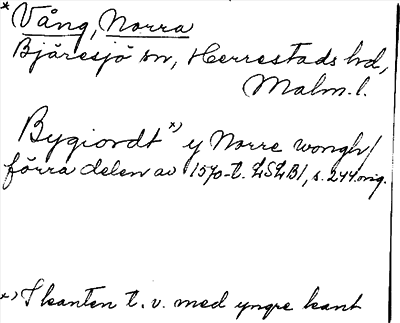 * Vång, Norra
Bjäresjö sn, Herrestads hd,
Malm.l.
Bygiordt *) y Norre wongh/
förra delen av 1570-t. LSLB1, s.244 orig.
*) I kanten t.v. med yngre hand